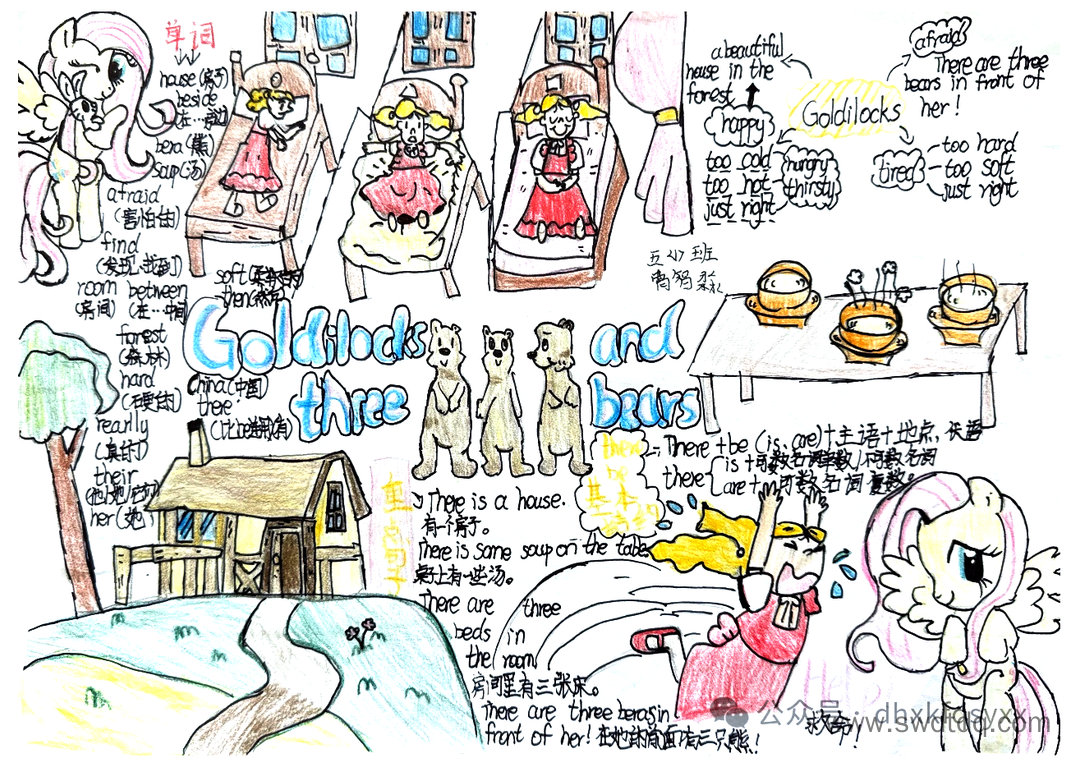 单词
house (房子)
beside
(在…旁边)
bera (熊)
soup (汤)
afraid
(害怕的)
find
(发现、找到)
room
(房间)
between
(在…中间)
forest
(森林)
hard
(硬的)
rearlly
(真的)
their
her (她
soft (柔软的)
then (然后)
china (中国)
there
Goldilocks
and
three
bears
a beautiful
house in the
forest
happy
too cold
too hot
just right
hungry
thirsty
Goldilocks
afraid
There are three
bears in front of
her!
tired
too hard
too soft
just right
五<1>班
there
be
基本
There + be (is、are) + 主语 + 地点,
there
is + 可数名词单数/不可数名词
are + 可数名词复数。
重点句子
There is a house.
有一个房子。
There is some soup on the table
桌子上有一些汤。
There are three
beds in
the room
房间里有三张床。
There are three beras in
front of her! 在她的前面有三只熊!
Help
救命!
公众号:dhxkjdsyxx
www.swdtdq.com